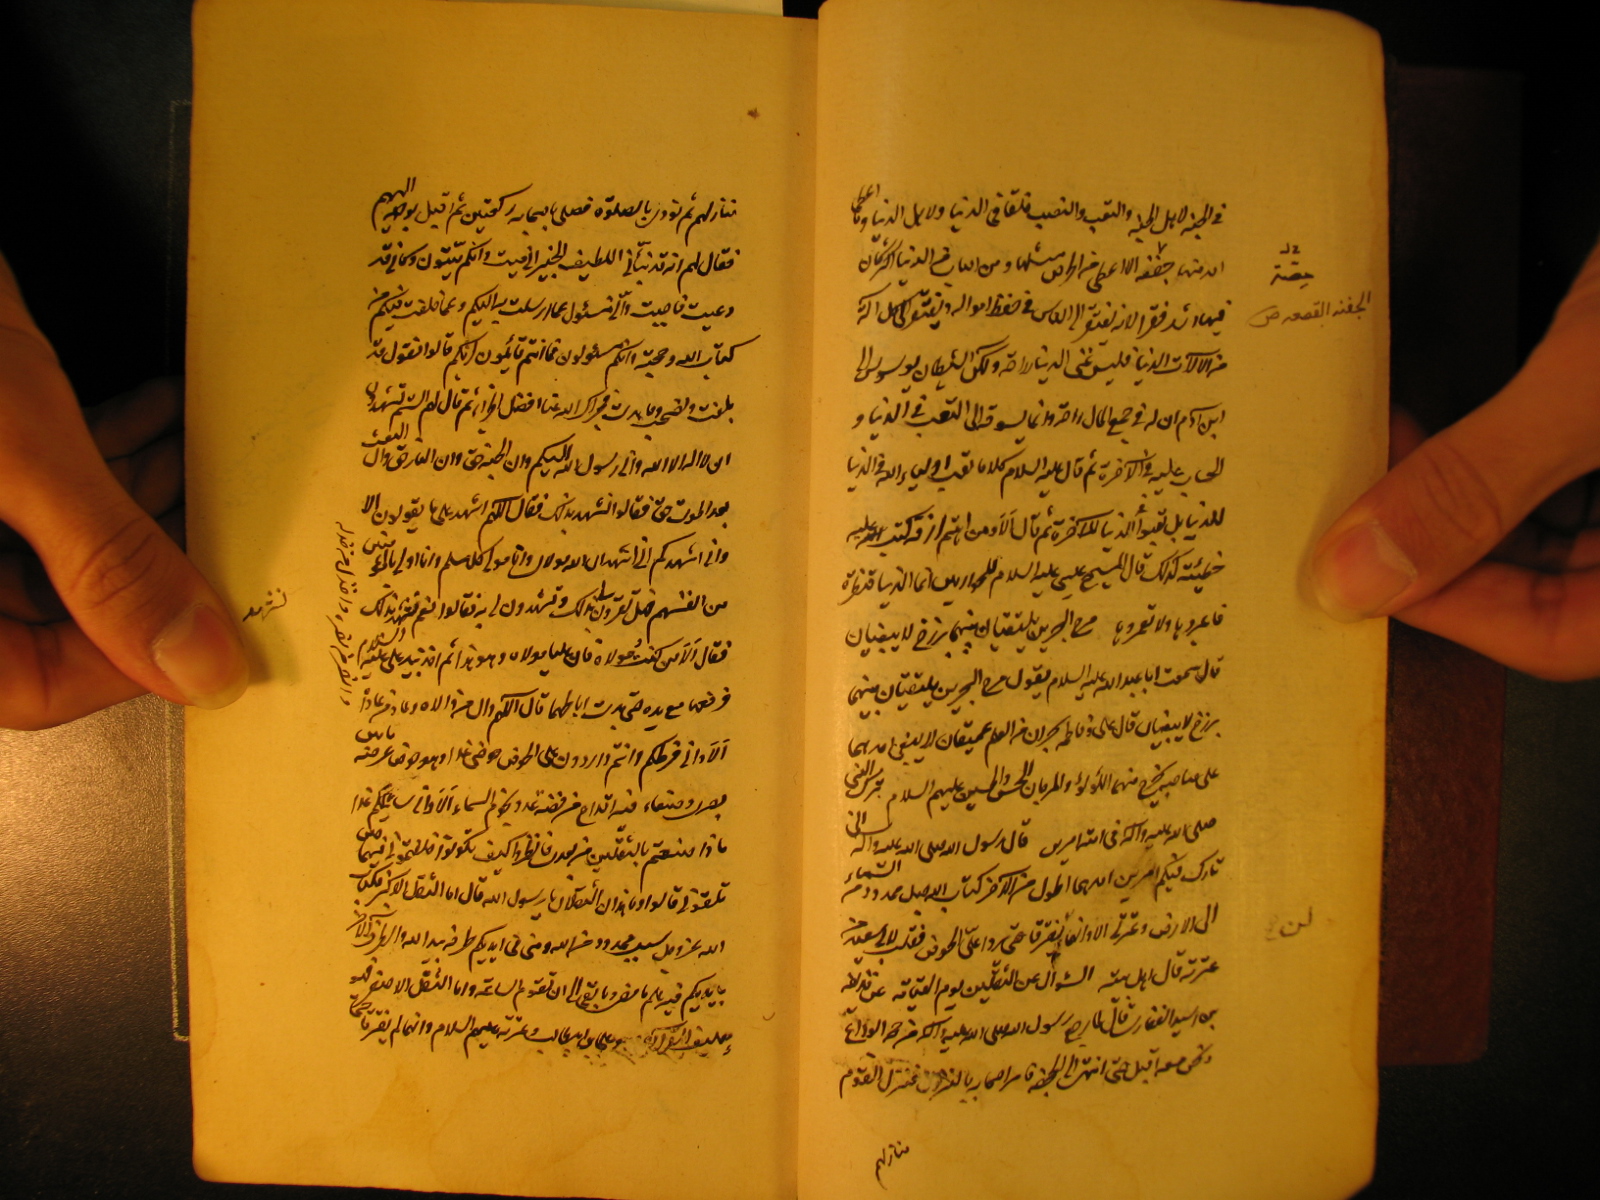 في الجنة لاهل الجنة والتعب والنصب خلقا في الدنيا ولاهل الدنيا وما اعطى
احد منها جفنة الا اعطى من الحرص مثليها ومن اصاب من الدنيا اكثر كان
فيها اشد فقرا لانه يفتقر الى الناس في حفظ امواله ويفتقر الى كل آلة
من آلات الدنيا فليس في غنى الدنيا راحة ولكن الشيطان يوسوس الى
ابن آدم ان له في جمع المال راحة وانما يسوقه الى التعب في الدنيا و
الحساب عليه في الآخرة ثم قال عليه السلام كلا ما تعب اولياء الله في الدنيا
للدنيا بل تعبوا في الدنيا للآخرة ثم قال الا ومن اهتم لرزقه كتب عليه
خطيئة كذلك قال المسيح عيسى عليه السلام للحواريين انما الدنيا قنطرة
فاعبروها ولا تعمروها مرج البحرين يلتقيان بينهما برزخ لا يبغيان
قال سمعت ابا عبد الله عليه السلام يقول مرج البحرين يلتقيان بينهما
برزخ لا يبغيان قال علي وفاطمة بحران من العلم عميقان لا يبغي احدهما
على صاحبه يخرج منهما اللؤلؤ والمرجان الحسن والحسين عليهم السلام
صلى الله عليه وآله في امته امرين قال رسول الله صلى الله عليه وآله اني
تارك فيكم امرين احدهما اطول من الآخر كتاب الله حبل ممدود من السماء
الى الارض وعترتي الا وانهما لن يفترقا حتى يردا علي الحوض فقلت لابي سعيد من
عترته قال اهل بيته السؤال عن الثقلين يوم القيامة عن حذيفة
بن اسيد الغفاري قال لما رجع رسول الله صلى الله عليه وآله من حجة الوداع
ونحن معه اقبل حتى انتهى الى الجحفة فامر اصحابه بالنزول فنزل القوم
منازلهم
الجفنة القصعة ص
لن
منازلهم ثم نودي بالصلوة فصلى باصحابه ركعتين ثم اقبل بوجهه اليهم
فقال لهم انه قد نبأني اللطيف الخبير اني ميت وانكم ميتون وكأني قد
دعيت فاجبت واني مسئول عما ارسلت به اليكم وعما خلفت فيكم من
كتاب الله وحجته وانكم مسئولون فما انتم قائلون لربكم قالوا نقول قد
بلغت ونصحت وجاهدت فجزاك الله عنا افضل الجزاء ثم قال لهم الستم تشهدون
ان لا اله الا الله واني رسول الله اليكم وان الجنة حق وان النار حق وان البعث
بعد الموت حق فقالوا نشهد بذلك فقال اللهم اشهد على ما يقولون الا
واني اشهدكم اني اشهد ان الله مولاي وانا مولى كل مسلم وانا اولى بالمؤمنين
من انفسهم فهل تقرون بذلك وتشهدون لي به فقالوا نعم نشهد بذلك
فقال الا من كنت مولاه فان عليا مولاه وهو هذا ثم اخذ بيد علي عليه السلام
فرفعها مع يده حتى بدت اباطهما قال اللهم وال من والاه وعاد من عاداه
الا واني فرطكم وانتم واردون علي الحوض حوضي غدا وهو حوض عرضه ما بين
بصرى وصنعاء فيه اقداح من فضة عدد نجوم السماء الا واني سائلكم غدا
ماذا صنعتم بالثقلين من بعدي فانظروا كيف تكونوا خلفتموني فيهما حين
تلقوني قالوا وما هذان الثقلان يا رسول الله قال اما الثقل الاكبر فكتاب
الله عز وجل سبب ممدود من الله ومني في ايديكم طرفه بيد الله والطرف الآخر
بايديكم فيه علم ما مضى وما بقي الى ان تقوم الساعة واما الثقل الاصغر فهو
حليف القرآن وهو علي بن ابي طالب وعترته عليهم السلام وانهما لم يفترقا حتى
وانصر من نصره واخذل من خذله
نشهد